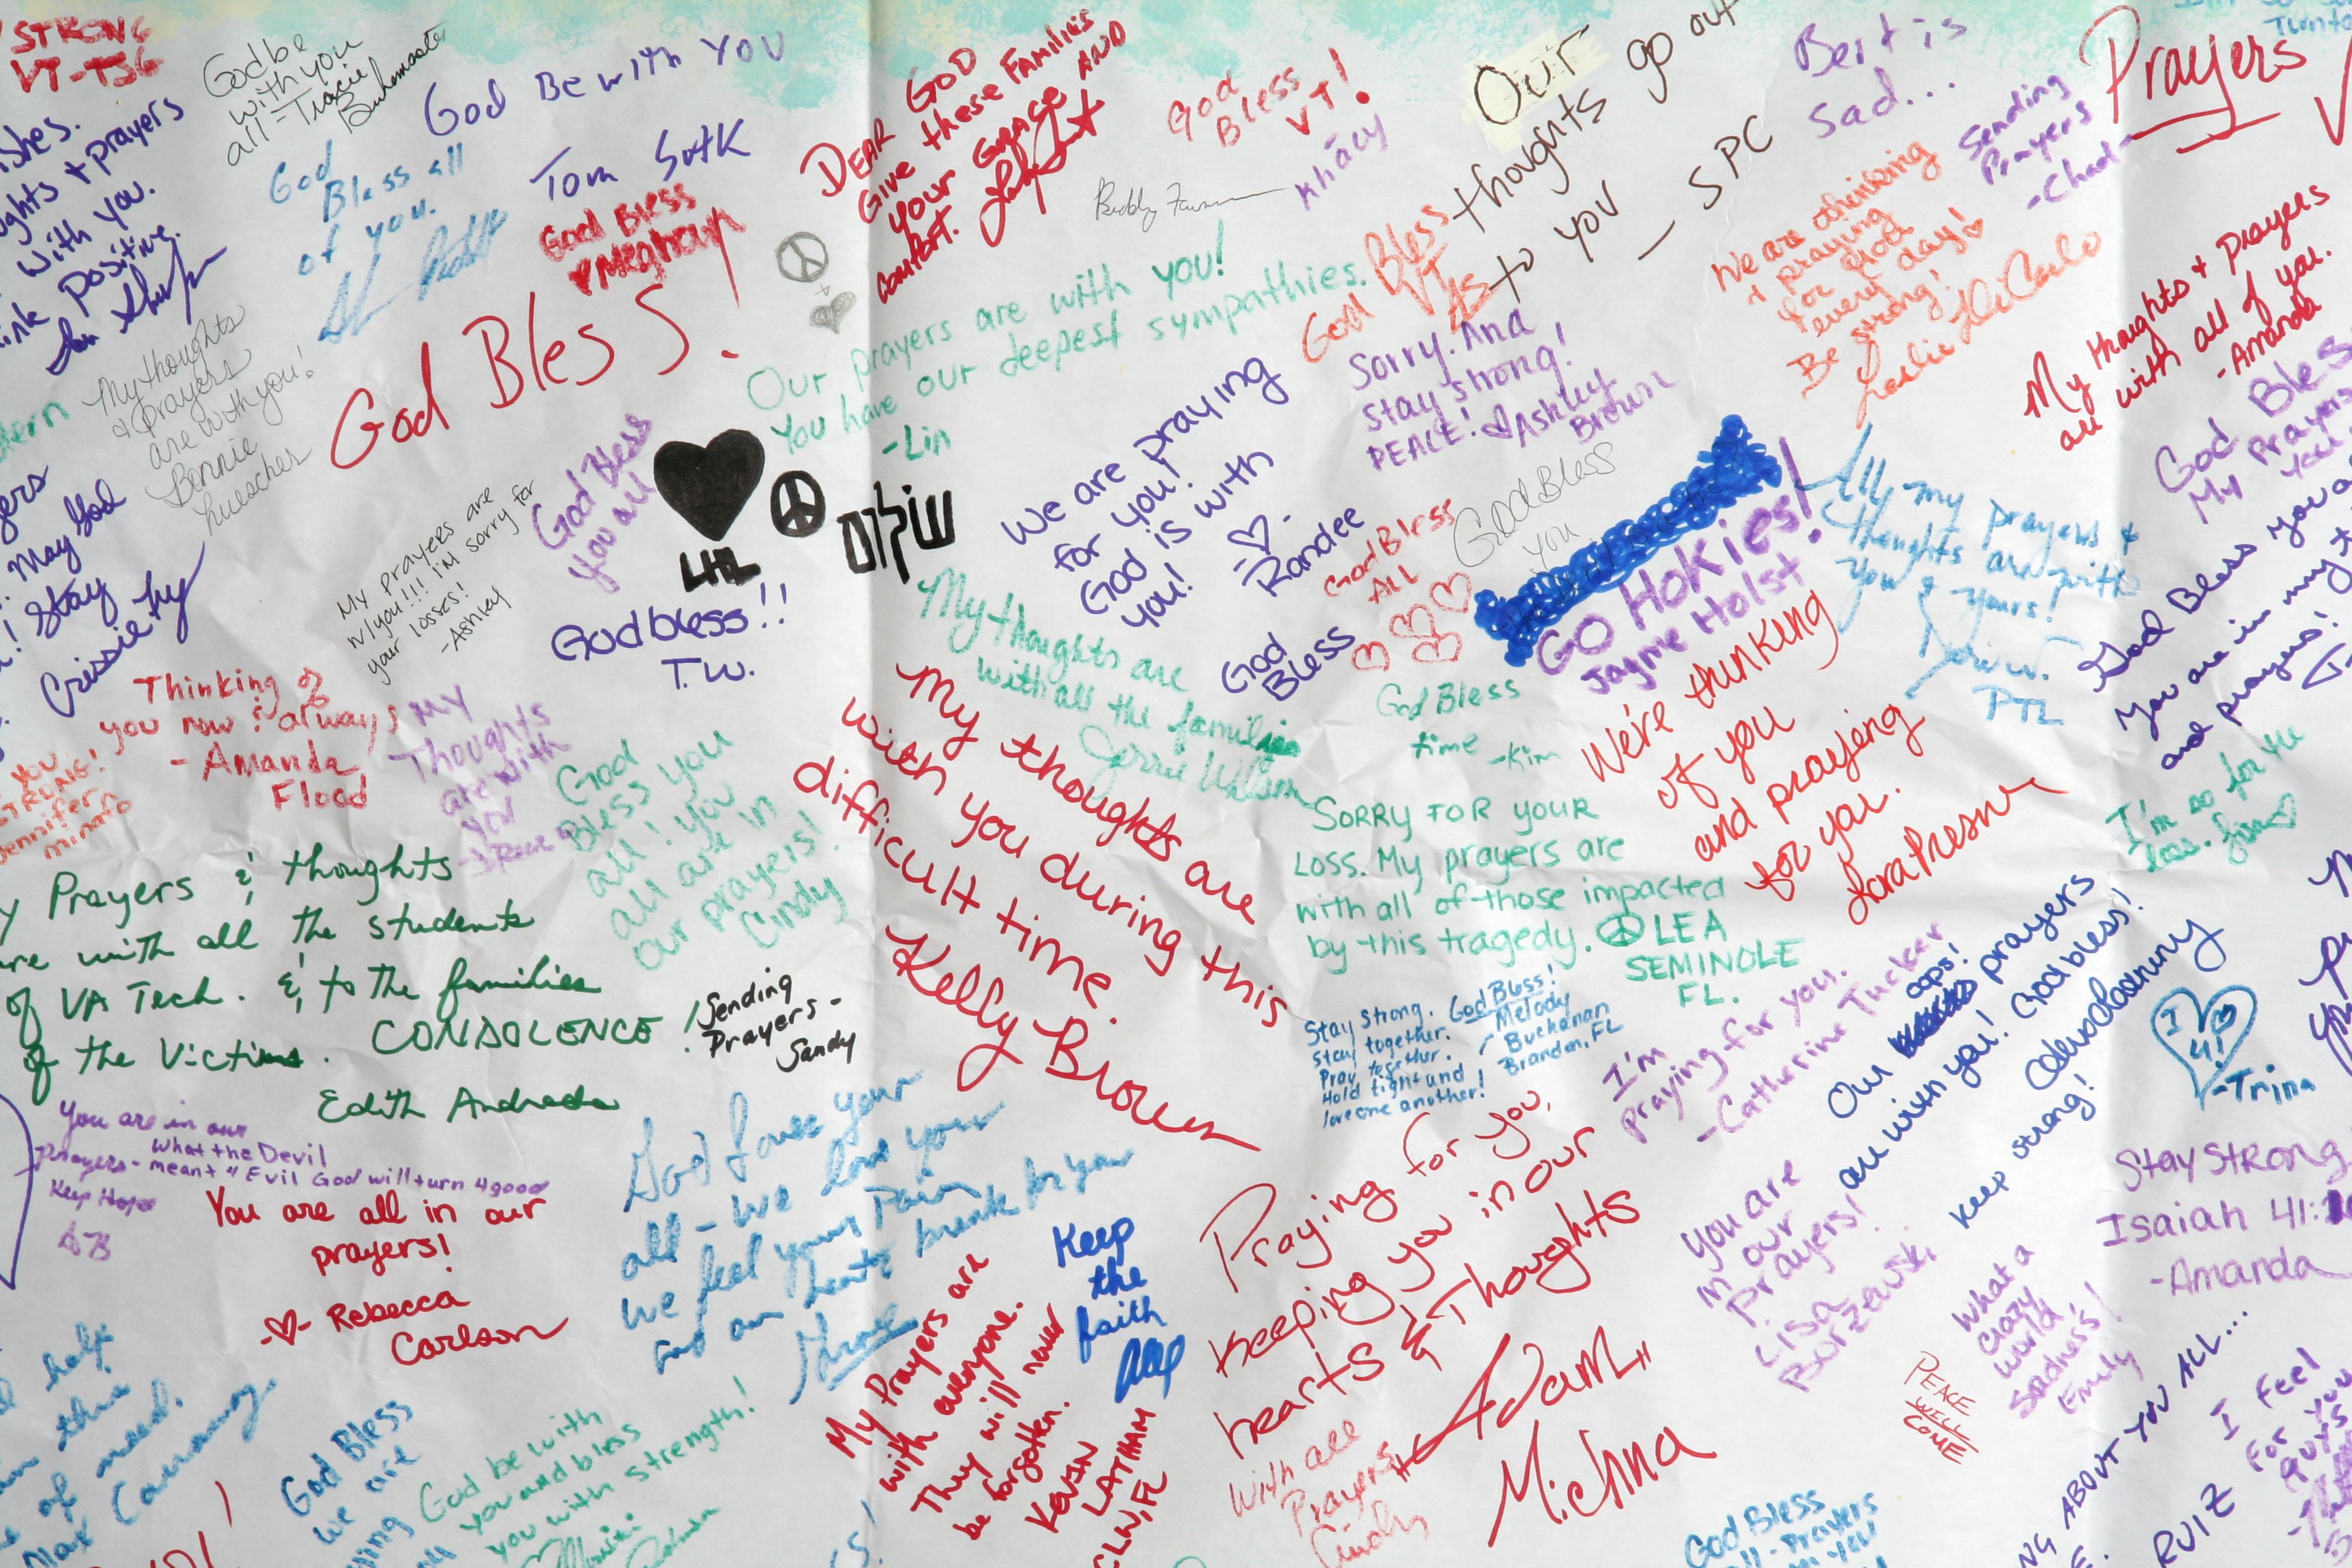 STRONG
VT-TSG
God be
with you
all - Tracie
God Be with YOU
Tom
God
Bless all
of you.
ishes.
oughts + prayers
with you.
ink positive.
God Bless
♥ Meghan
DEAR GOD
Give these Families
YOUR GRACE AND
comfort.
God
Bless
VT!
Khacy
Our
thoughts go out
to you - SPC
Bert is
sad...
Sending
Prayers
- Chad
Prayers
My thoughts
& prayers
are with you!
Bennie
God Bless!
Our prayers are with you!
You have our deepest sympathies.
- Lin
God Bless
VT
Sorry. And
stay strong!
PEACE! Ashley
Brown
We are thinking
+ praying
for God
every day!
Be strong!
Leslie DeCarlo
My thoughts + prayers
are with all of you.
- Amanda
God Bless
My prayers
May God
! Stay
My prayers are
w/you!!! I'm sorry for
your losses!
- Ashley
God Bless
you all
שלום
God bless!!
T.W.
We are praying
for you!
God is with
you!
Randee
God Bless
All
God Bless
you
GO HOKIES!
Jayme Holst
All my prayers &
thoughts are with
you & yours!
PTL
God Bless you a
You are in my t
and prayers!
God
Bless
Thinking of
you now & always
- Amanda
Flood
My
Thoughts
are with
you
YOU
STRONG!
Jennifer
minaro
God
Bless you
all! You
all are in
our prayers!
Cindy
My thoughts are
with all the families
Jerrie
My thoughts are
with you during this
difficult time.
Kelly Brown
God Bless
time - Kim
We're thinking
of you
and praying
for you.
I'm so for the
loss.
y Prayers & thoughts
are with all the students
of VA Tech. & to the families
of the Victims. CONDOLENCE!
Edith Andrada
Sending
Prayers -
Sandy
SORRY FOR YOUR
LOSS. My prayers are
with all of those impacted
by this tragedy. LEA
SEMINOLE
FL.
Stay strong. God Bless!
Stay together. - Melody
Pray together. Buchanan
Hold tight and Brandon, FL
love one another!
I'm
praying for you.
- Catherine Tucker
oops!
Our prayers
are with you! God bless!
keep strong!
I ♥
U!
- Trina
You are in our
prayers - What the Devil
meant 4 Evil God will turn 4 good
Keep Hope
You are all in our
prayers!
-♥- Rebecca
Carlson
God loves you
all - we love you
we feel your Pain
and our hearts break for you
Keep
the
faith
My Prayers are
with everyone.
They will never
be forgotten.
KEVIN
LATHAM
CLW, FL
Praying for you,
keeping you in our
hearts & Thoughts
Adam
Michna
With all
Prayers
Cindy
You are
in our
prayers!
Lisa
Borzewski
What a
crazy
world
sadness!
Emily
PEACE
WILL
COME
Stay Strong
Isaiah 41:
- Amanda
help
of need.
God Bless
we are
God be with
you and bless
you with strength!
God Bless
NG ABOUT YOU ALL...
RUIZ
I feel
for you
guys